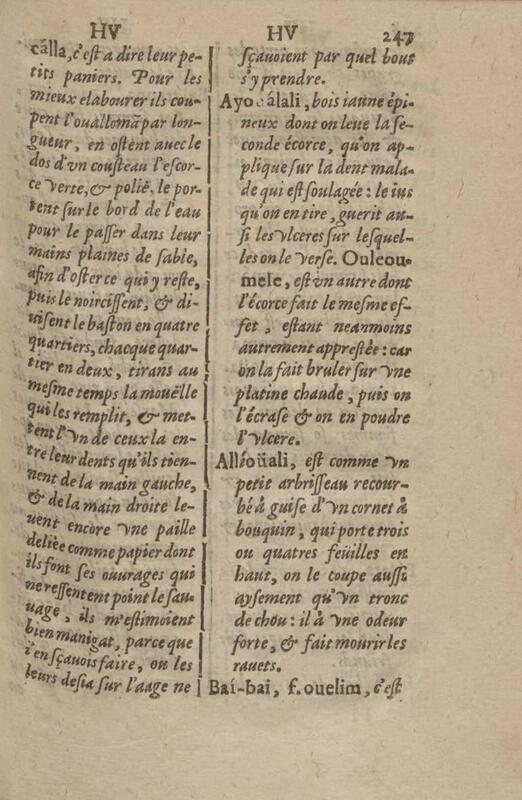 HV
HV 247
cálla, c'est a dire leur pe-
tits paniers. Pour les
mieux elabourer ils cou-
pent l'ouallomã par lon-
gueur, en ostent auec le
dos d'vn cousteau l'escor-
ce verte, & polië, le por-
tent sur le bord de l'eau
pour le passer dans leur
mains plaines de sable,
afin d'oster ce qui y reste,
puis le noircissent, & di-
uisent le baston en quatre
quartiers, chacque quar-
tier en deux, tirans au
mesme temps la mouëlle
qui les remplit, & met-
tent l'vn de ceux la en-
tre leur dents qu'ils tien-
nent de la main gauche,
& de la main droite le-
uent encore vne paille
deliée comme papier dont
ils font ses ouurages qui
ne ressentent point le sau-
uage, ils m'estimoient
bien manigat, parce que
i'en sçauois faire, ou les
leurs desia sur l'aage ne
sçauoient par quel bout
s'y prendre.
Ayo cálali, bois iaune épi-
neux dont on leue la se-
conde écorce, qu'on ap-
plique sur la dent mala-
de qui est soulagée : le ius
qu'on en tire, guerit au-
si les vlceres sur lesquel-
les on le verse. Ouleou-
mele, est vn autre dont
l'écorce fait le mesme ef-
fet, estant neanmoins
autrement apprestée : car
on la fait bruler sur vne
platine chaude, puis on
l'écrase & on en poudre
l'vlcere.
Allíoüali, est comme vn
petit arbrisseau recour-
bé à guise d'vn cornet à
bouquin, qui porte trois
ou quatres feüilles en
haut, on le coupe aussi
aysement qu'vn tronc
de chou : il à vne odeur
forte, & fait mourir les
rauets.
Baí-bai, f. ouelim, c'est